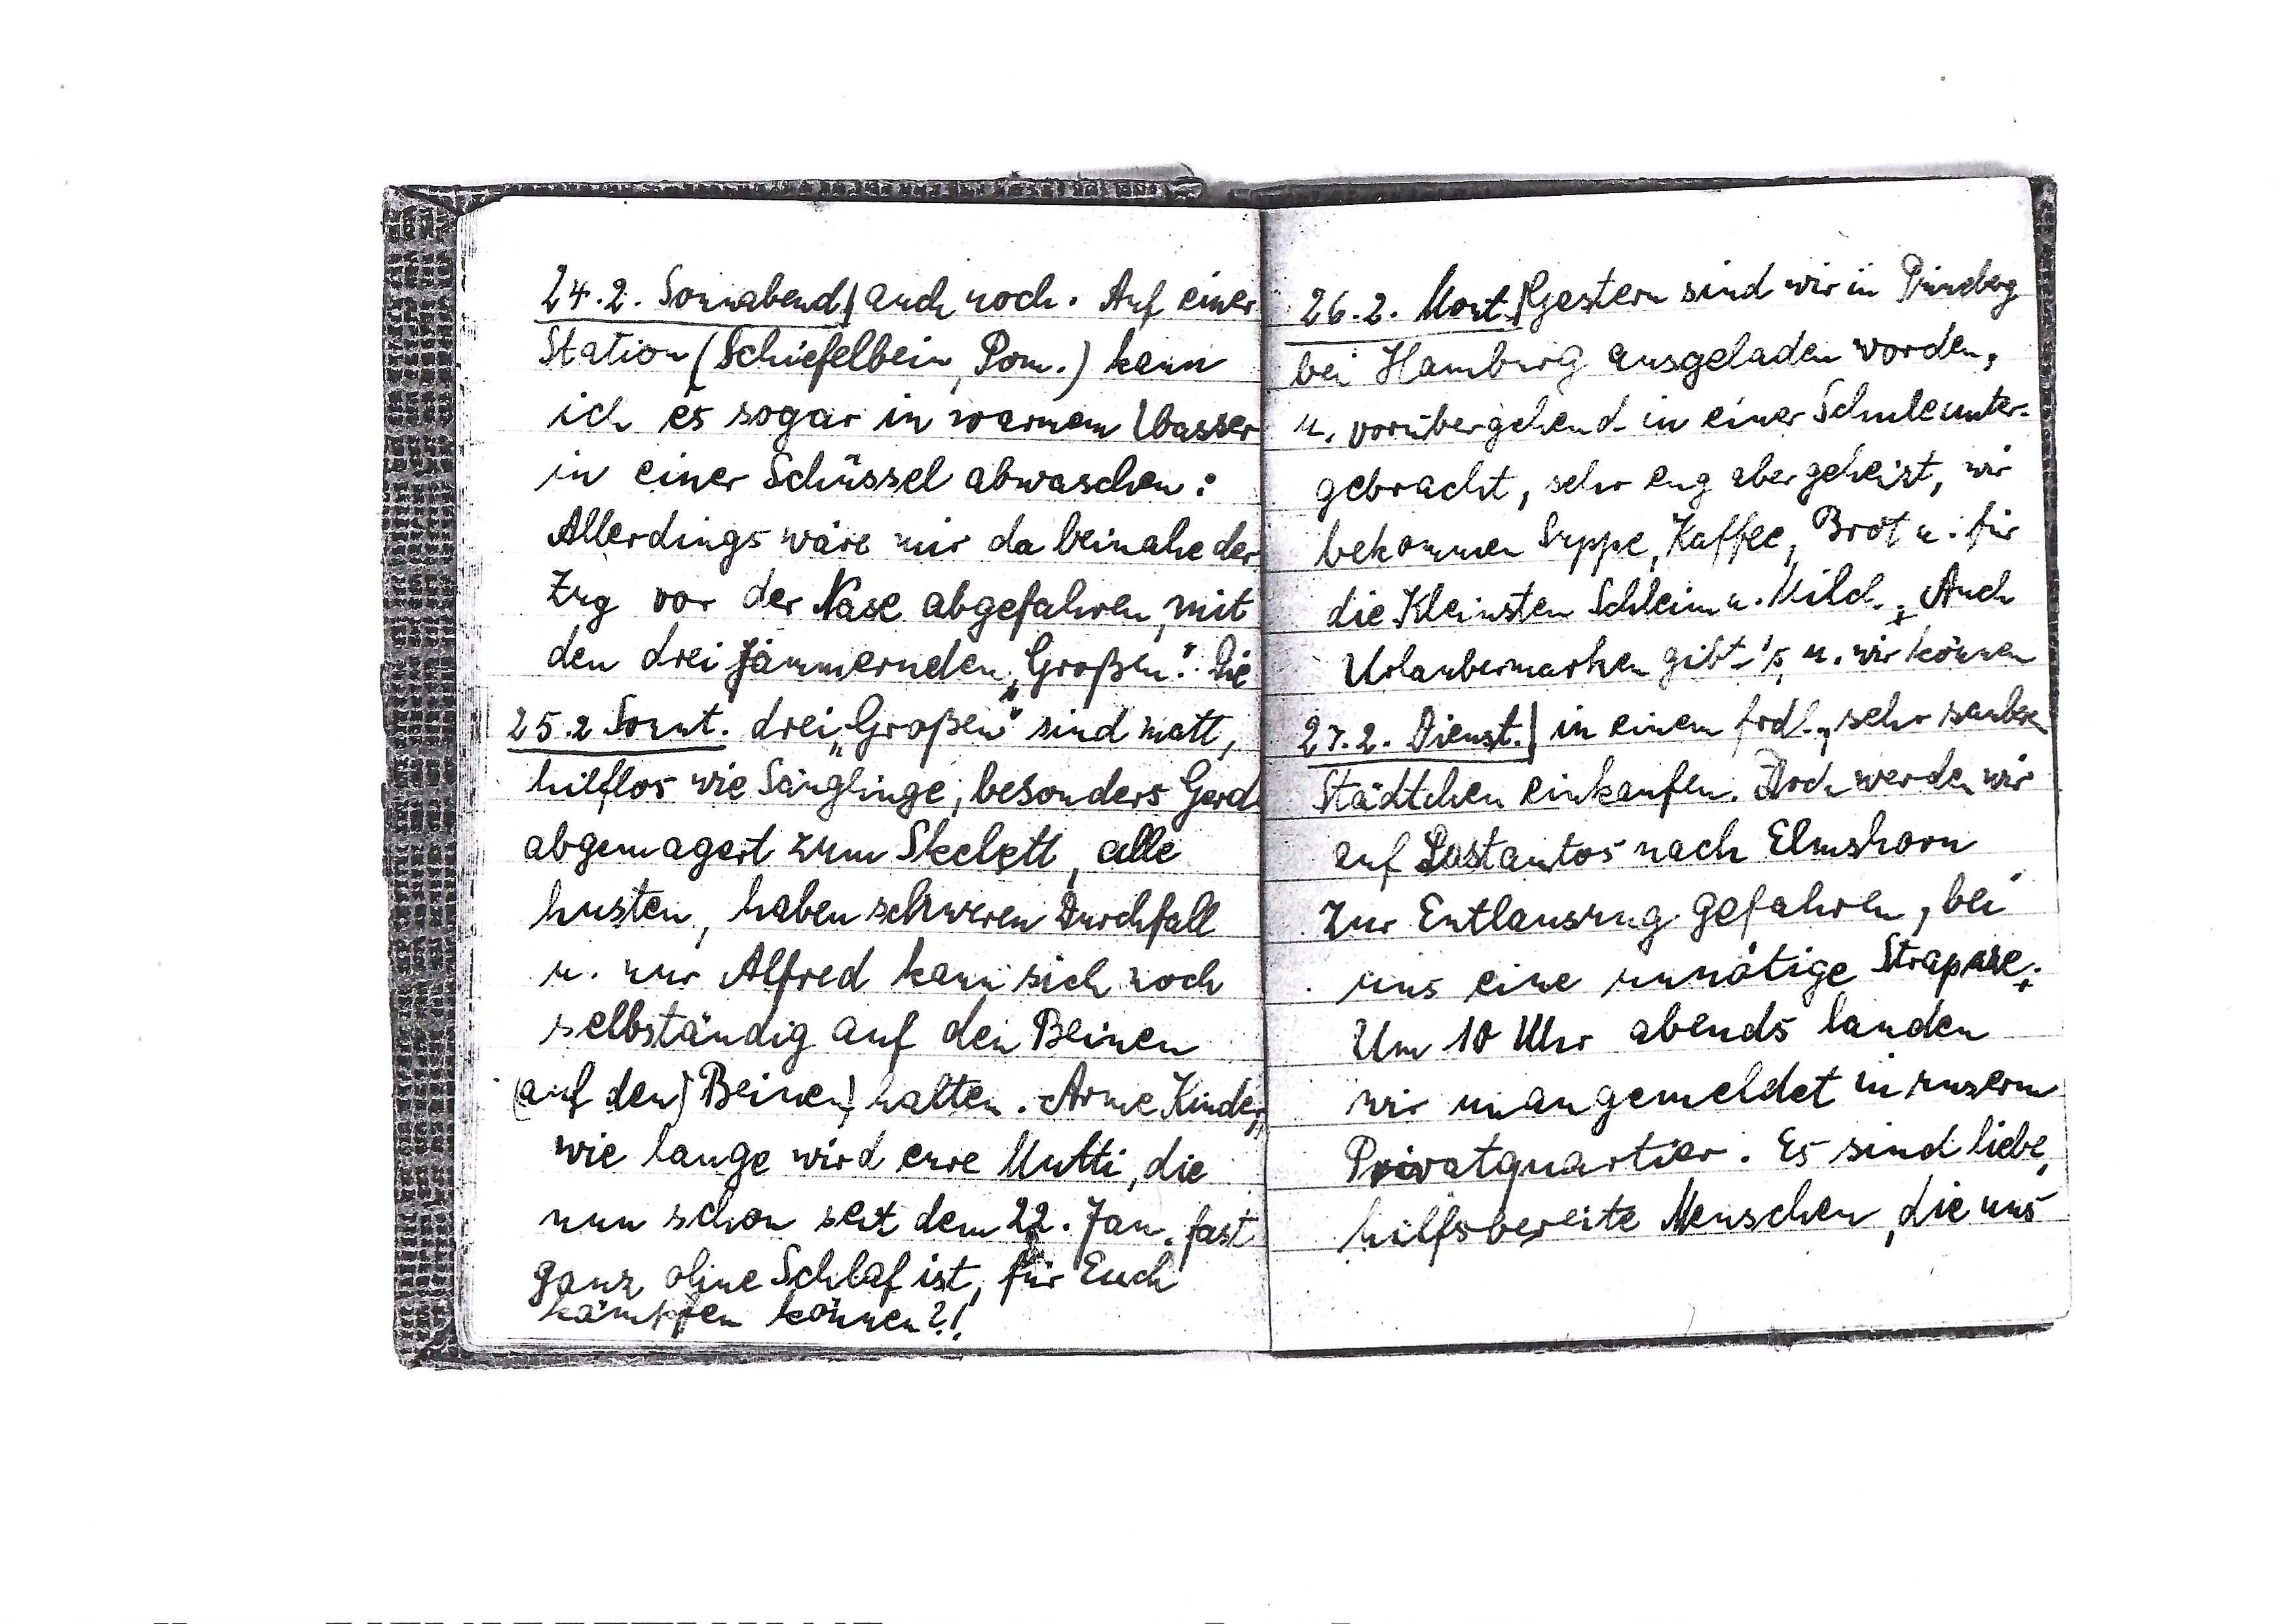 24.2. Sonnabend| auch noch. Auf einer
Station (Schiefelbein, Pom.) kann
ich es sogar in warmem Wasser
in einer Schüssel abwaschen:
Allerdings wäre mir da beinahe der
Zug vor der Nase abgefahren, mit
den drei jämmernden „Großen“. Die
25.2 Sonnt. drei „Großen“ sind matt,
hilflos wie Säuglinge, besonders Gerd
abgemagert zum Skelett, alle
husten, haben schweren Durchfall
u. nur Alfred kann sich noch
selbständig auf den Beinen
(auf den) Beinen) halten. Arme Kinder,
wie lange wird eure Mutti, die
nun schon seit dem 22. Jan. fast
ganz ohne Schlaf ist, für Euch
kämpfen können?!
26.2. Mont.| Gestern sind wir in Pinneberg
bei Hamburg ausgeladen worden,
u. vorübergehend in einer Schule unter-
gebracht, sehr eng aber geheizt, wir
bekommen Suppe, Kaffee, Brot u. für
die Kleinsten Schleim u. Milch. Auch
Urlaubermarken gibt's, u. wir können
27.2. Dienst.| in einem frdl., sehr saubere
Städtchen einkaufen. Doch werden wir
auf Lastautos nach Elmshorn
zur Entlausung gefahren, bei
uns eine unnötige Strapaze.
Um 10 Uhr abends landen
wir unangemeldet in unserm
Privatquartier. Es sind liebe,
hilfsbereite Menschen, die uns